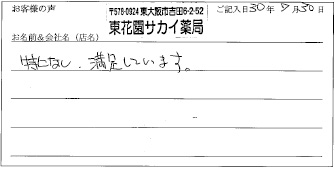 お客様の声
〒578-0924 東大阪市吉田6-2-52
ご記入日30年9月30日
東花園サカイ薬局
お名前&会社名（店名）
特になし、満足しています。